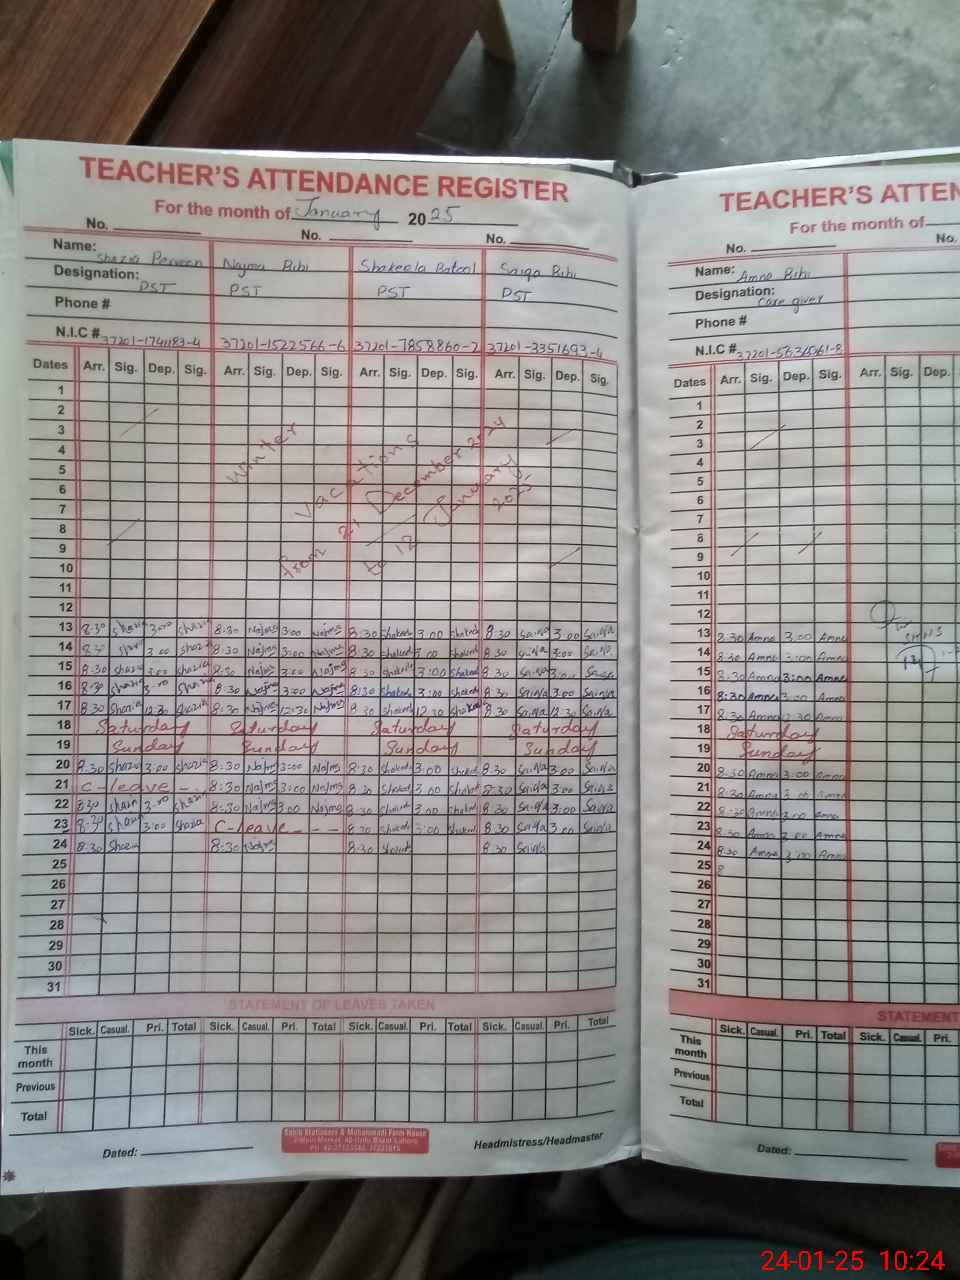 TEACHER'S ATTENDANCE REGISTER
For the month of January 2025
No. No. No.
Name: Shazia Perveen Najma Bibi Shakeela Batool Saiqa Bibi
Designation: PST PST PST PST
Phone #
N.I.C # 37201-1741183-4 37201-1522566-6 37201-7858860-2 37201-3351693-4
Dates Arr. Sig. Dep. Sig. Arr. Sig. Dep. Sig. Arr. Sig. Dep. Sig. Arr. Sig. Dep. Sig.
1
2
3
4
5
6
7
8
9
10
11
12
Winter
Vacations
from 21 December 2024
to 12 January, 2025
13 8:30 Shazia 3:00 Shazia 8:30 Najma 3:00 Najma 8:30 Shakeela 3:00 Shakeela 8:30 Saiqa 3:00 Saiqa
14 8:30 Shazia 3:00 Shazia 8:30 Najma 3:00 Najma 8:30 Shakeela 3:00 Shakeela 8:30 Saiqa 3:00 Saiqa
15 8:30 Shazia 3:00 Shazia 8:30 Najma 3:00 Najma 8:30 Shakeela 3:00 Shakeela 8:30 Saiqa 3:00 Saiqa
16 8:30 Shazia 3:00 Shazia 8:30 Najma 3:00 Najma 8:30 Shakeela 3:00 Shakeela 8:30 Saiqa 3:00 Saiqa
17 8:30 Shazia 12:30 Shazia 8:30 Najma 12:30 Najma 8:30 Shakeela 12:30 Shakeela 8:30 Saiqa 12:30 Saiqa
18 Saturday Saturday Saturday Saturday
19 Sunday Sunday Sunday Sunday
20 8:30 Shazia 3:00 Shazia 8:30 Najma 3:00 Najma 8:30 Shakeela 3:00 Shakeela 8:30 Saiqa 3:00 Saiqa
21 C-leave - - 8:30 Najma 3:00 Najma 8:30 Shakeela 3:00 Shakeela 8:30 Saiqa 3:00 Saiqa
22 8:30 Shazia 3:00 Shazia 8:30 Najma 3:00 Najma 8:30 Shakeela 3:00 Shakeela 8:30 Saiqa 3:00 Saiqa
23 8:30 Shazia 3:00 Shazia C-leave - - - 8:30 Shakeela 3:00 Shakeela 8:30 Saiqa 3:00 Saiqa
24 8:30 Shazia 8:30 Najma 8:30 Shakeela 8:30 Saiqa
25
26
27
28
29
30
31
STATEMENT OF LEAVES TAKEN
Sick. Casual. Pri. Total Sick. Casual. Pri. Total Sick. Casual. Pri. Total Sick. Casual. Pri. Total
This month
Previous
Total
Dated: Headmistress/Headmaster
TEACHER'S ATTEN
For the month of
No. No.
Name: Amna Bibi
Designation: Care giver
Phone #
N.I.C #
Dates Arr. Sig. Dep. Sig. Arr. Sig. Dep.
1
2
3
4
5
6
7
8
9
10
11
12
13 8:30 Amna 3:00 Amna
14 8:30 Amna 3:00 Amna
15 8:30 Amna 3:00 Amna
16 8:30 Amna 3:00 Amna
17 8:30 Amna 12:30 Amna
18 Saturday
19 Sunday
20 8:30 Amna 3:00 Amna
21 8:30 Amna 3:00 Amna
22 8:30 Amna 3:00 Amna
23 8:30 Amna 3:00 Amna
24 8:30 Amna 3:00 Amna
25 8
26
27
28
29
30
31
STATEMENT
Sick. Casual. Pri. Total Sick. Casual. Pri.
This month
Previous
Total
Dated:
24-01-25 10:24